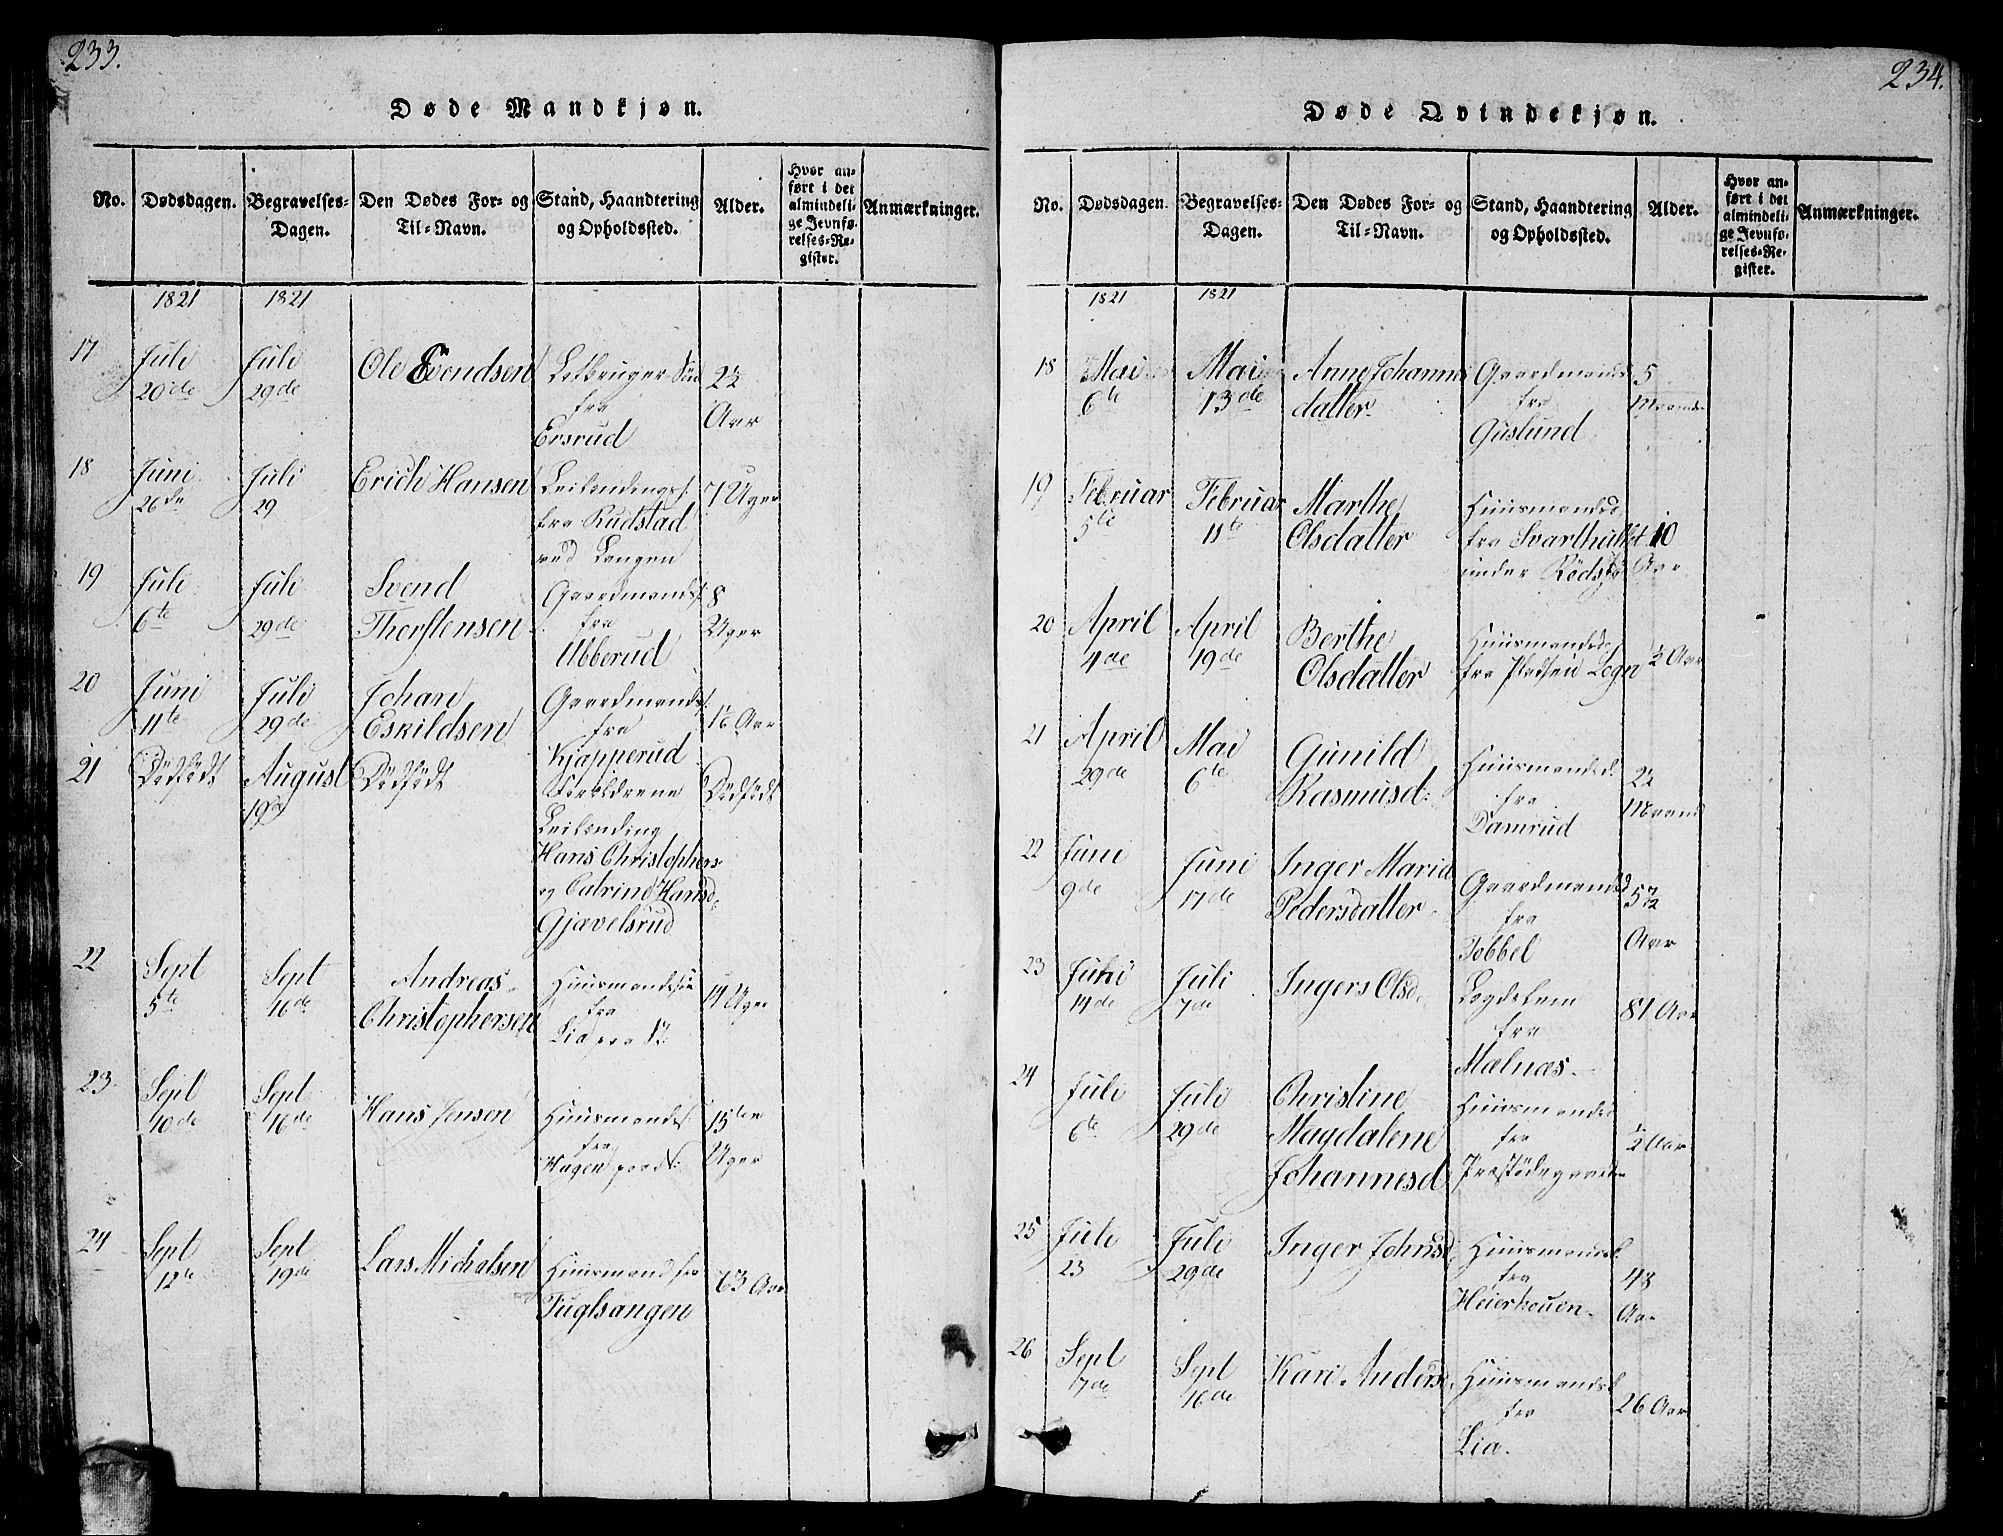 233.
Døde Mandkjøn.
No.
Dødsdagen.
Begravelses-
Dagen.
Den Dødes For- og
Til-Navn.
Stand, Haandtering
og Opholdssted.
Alder.
Hvor an-
ført i det
almindeli-
ge Jevnfø-
relses-Re-
gister.
Anmærkninger.
1821
1821
17
Juli
20de
Juli
29de
Ole Evendsen
fra
Ersrud
2½
Aar
18
Juni
26de
Juli
29
Erich Hansen
Leilendings
fra Rudstad
ved Langen
7 Uger
19
Juli
6te
Juli
29de
Svend
Thorstensen
Gaardmands
fra
Ubberud
8
Uger
20
Juni
11te
Juli
29de
Johan
Eskildsen
Gaardmands
fra
Kjapperud
Aar
21
Dødfødt
August
19
Dødfødt
Forældrene
Leilending
Hans Christophers
og Catrine Hansd:
Gjavelsrud
Dødfødt
22
Sept
5te
Sept
16de
Andreas
Christophersen
Huusmandssøn
fra
Lia
14 Uger
23
Sept
10de
Sept
16de
Hans Jensen
Huusmands
fra
Hagen
15ten
Uger
24
Sept
12te
Sept
19de
Lars Michelsen
Huusmand fra
Fuglsangen
63 Aar
234.
Døde Qvindekjøn.
No.
Dødsdagen.
Begravelses-
Dagen.
Den Dødes For- og
Til-Navn.
Stand, Haandtering
og Opholdssted.
Alder.
Hvor an-
ført i det
almindeli-
ge Jevnfø-
relses-Re-
gister.
Anmærkninger.
1821
1821
18
Mai
6te
Mai
13de
Anne Johannes
datter
Gaardmands
fra
Guslund
5
Maaneder
19
Februar
5te
Februar
11te
Marthe
Olsdatter
Huusmandsd
fra Svarthullet
under
10
Aar
20
April
4de
April
19de
Berthe
Olsdatter
Huusmandsd
fra Pladsen Logn
½ Aar
21
April
29de
Mai
6te
Gunild
Rasmusd:
Huusmandsd
fra
Damrud
2½
Maaned
22
Juni
9de
Juni
17de
Inger Maria
Pedersdatter
Gaardmandsd
fra
Tobbel
5½
Aar
23
Juni
14de
Juli
7de
Ingers Olsd:
Legdelem
fra
Mælnæs
81 Aar
24
Juli
6te
Juli
29de
Christine
Magdalene
Johannesd
Huusmandsd
fra
Præstødegaarden
½ Aar
25
Juli
23
Juli
29de
Inger Johnsd
Huusmands
fra
Heierhouen
48
Aar
26
Sept
7de
Sept
16de
Kari Anders
Huusmands
fra
Lia.
26 Aar